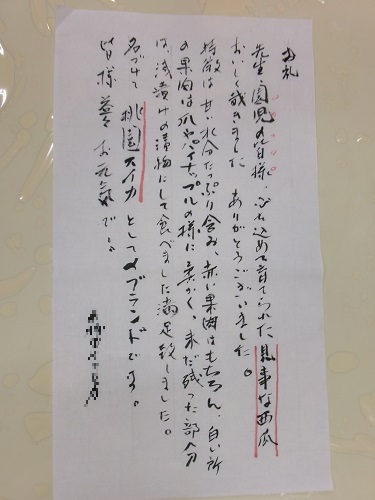 お礼
先生・園児の皆様、心を込めて育てられた見事な西瓜
おいしく戴きました ありがとうございました。
特徴は甘い水分たっぷり含み、赤い果肉はもちろん、白い所
の果肉は瓜やパイナップルの様に柔かく、未だ残った部分
は、浅漬けの漬物にして食べました満足致しました。
名づけて桃園スイカとしてのブランドです。
皆様益々お元気で。